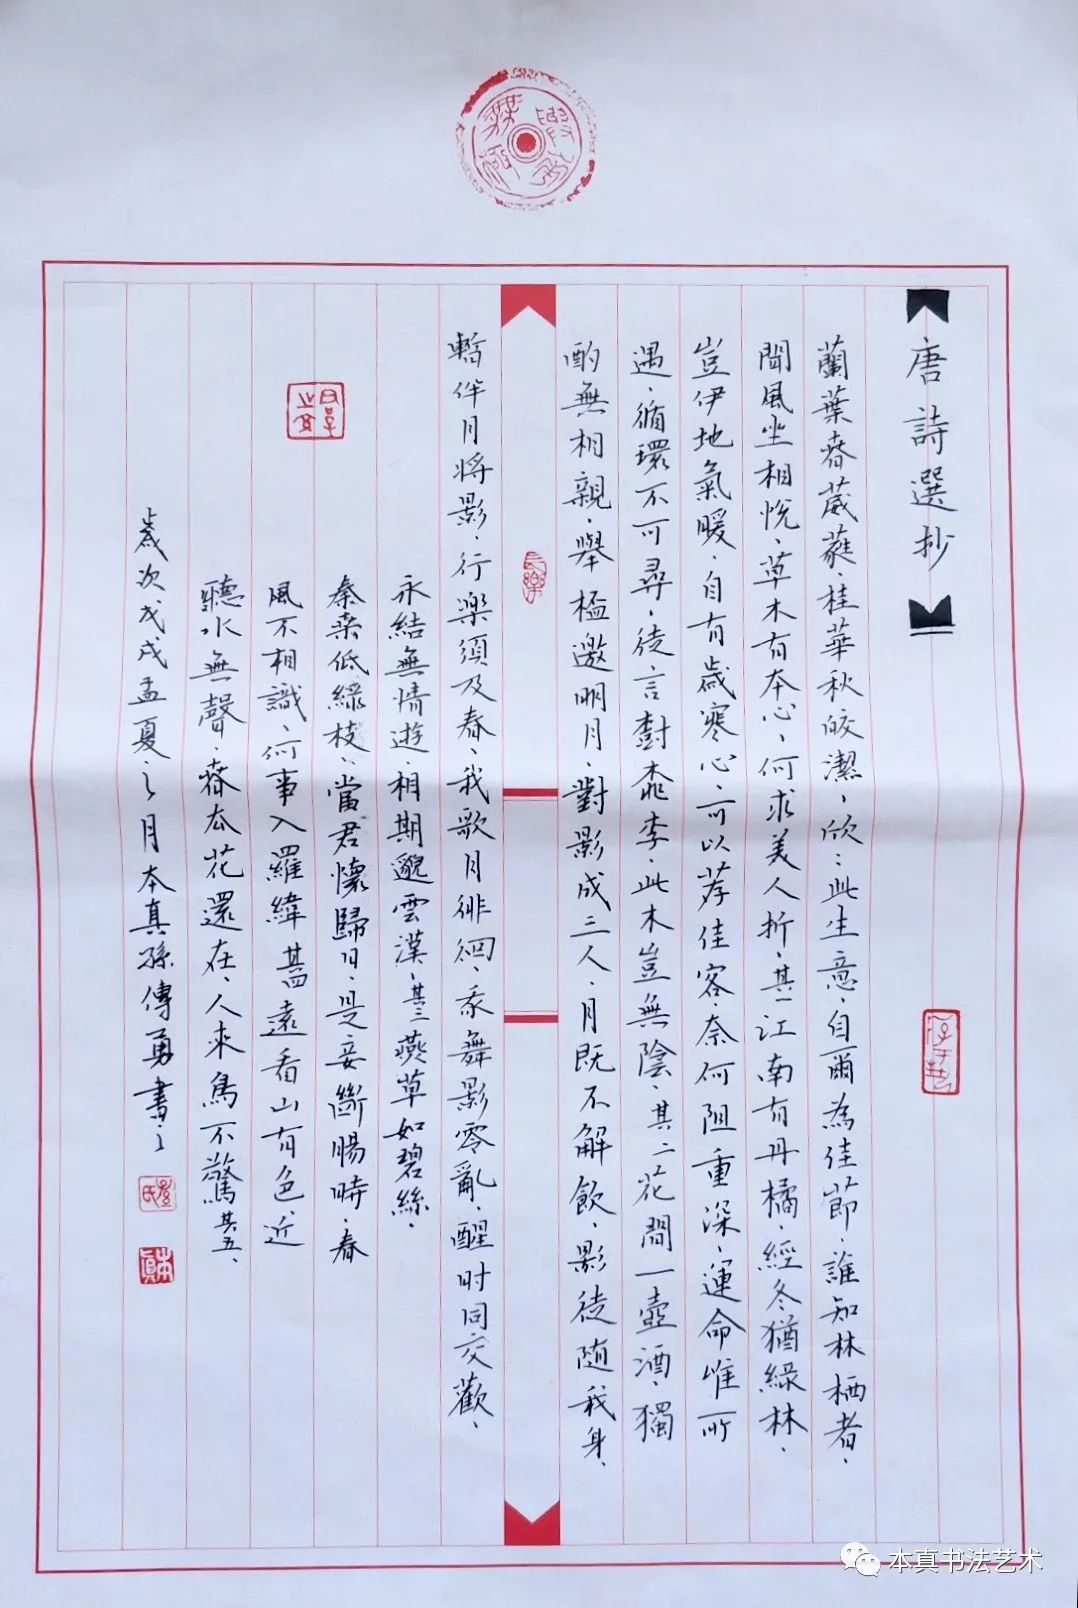 唐詩選抄
蘭葉春葳蕤、桂華秋皎潔、欣：此生意、自爾為佳節、誰知林栖者、
聞風坐相悅、草木有本心、何求美人折、其一江南有丹橘、經冬猶綠林、
豈伊地氣暖、自有歲寒心、可以荐佳客、奈何阻重深、運命唯所
遇、循環不可尋、徒言樹桃李、此木豈無陰、其二花間一壺酒、獨
酌無相親、舉杯邀明月、對影成三人、月既不解飲、影徒隨我身、
暫伴月將影、行樂須及春、我歌月徘徊、我舞影零亂、醒时同交歡、
永結無情遊、相期邈雲漢、其三燕草如碧絲、
秦桑低綠枝、當君懷歸日、是妾斷腸時、春
風不相識、何事入羅緯其四遠看山有色、近
聽水無聲、春去花還在、人來鳥不驚其五、
歲次戊戌孟夏之月本真孫傳勇書之
長樂
孫氏
本真
本真书法艺术